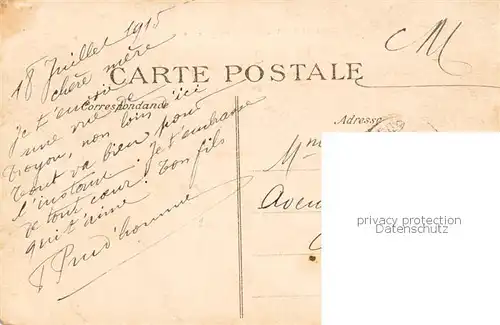 18 Juillet 1915
chère mère
CM
CARTE POSTALE
Correspondance
Adresse
Je t'envoie
une vue de
Troyon, non loin d'ici
tout va bien pour
l'instant. Je t'embrasse
de tout cœur. Ton fils
qui t'aime.
Prud'homme
Mme
Aven
privacy protection
Datenschutz